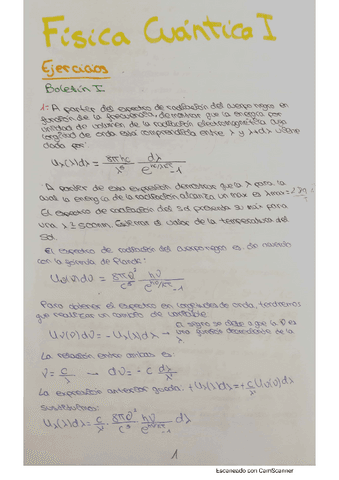 Física Cuántica I
Ejercicios
Boletín I.
1.- A partir del espectro de radiación del cuerpo negro en
función de la frecuencia, demostrar que la energía por
unidad de volumen de la radiación electromagnética cuya
longitud de onda está comprendida entre λ y λ+dλ viene
dada por:
Uλ(λ)dλ = 8πhc/λ⁵ dλ/(e^(hc/λKT) -1)
A partir de esta expresión demostrar que la λ para la
cual la energía de la radiación alcanza un max es λmax=
El espectro de radiación del Sol presenta su max para
una λ ≃ 500nm. Estimar el valor de la temperatura del
Sol.
El espectro de radiación del cuerpo negro es, de acuerdo
con la fórmula de Planck:
Uν(ν)dν = 8πν²/c³ hν/(e^(hν/KT) -1)
Para obtener el espectro en longitudes de onda, tendremos
que realizar un cambio de variable
Uν(ν)dν = -Uλ(λ)dλ → El signo se debe a que la ν es
una función decreciente de la
λ
La relación entre ambas es:
ν = c/λ → dν = -c dλ/λ²
La expresión anterior queda: +Uλ(λ)dλ = + c/λ² Uν(ν)dλ
Sustituimos:
Uλ(λ)dλ = c/λ² · 8πν²/c³ hν/(e^(hν/KT) -1) dλ
1
Escaneado con CamScanner